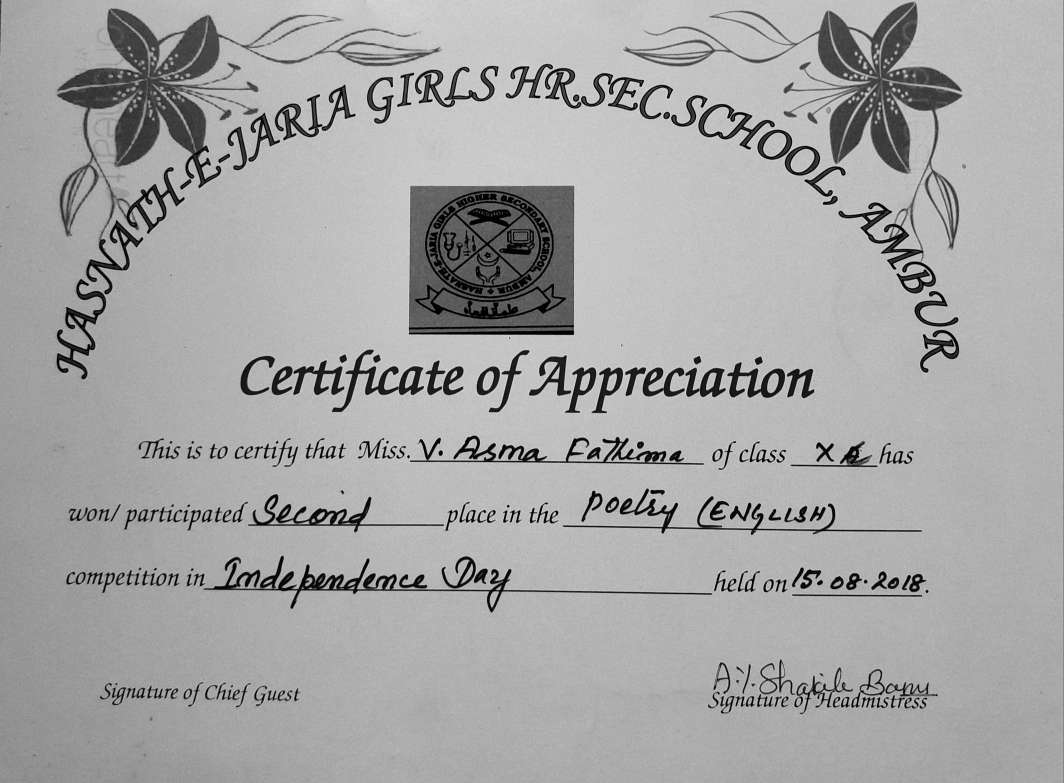 HASNATH-E-JARIA GIRLS HR.SEC.SCHOOL, AMBUR
HASNATH-E-JARIA GIRLS HIGHER SECONDARY SCHOOL, AMBUR
Certificate of Appreciation
This is to certify that Miss. V. Asma Fathima of class X has
won/ participated Second place in the Poetry (ENGLISH)
competition in Independence Day held on 15.08.2018.
Signature of Chief Guest
Signature of Headmistress